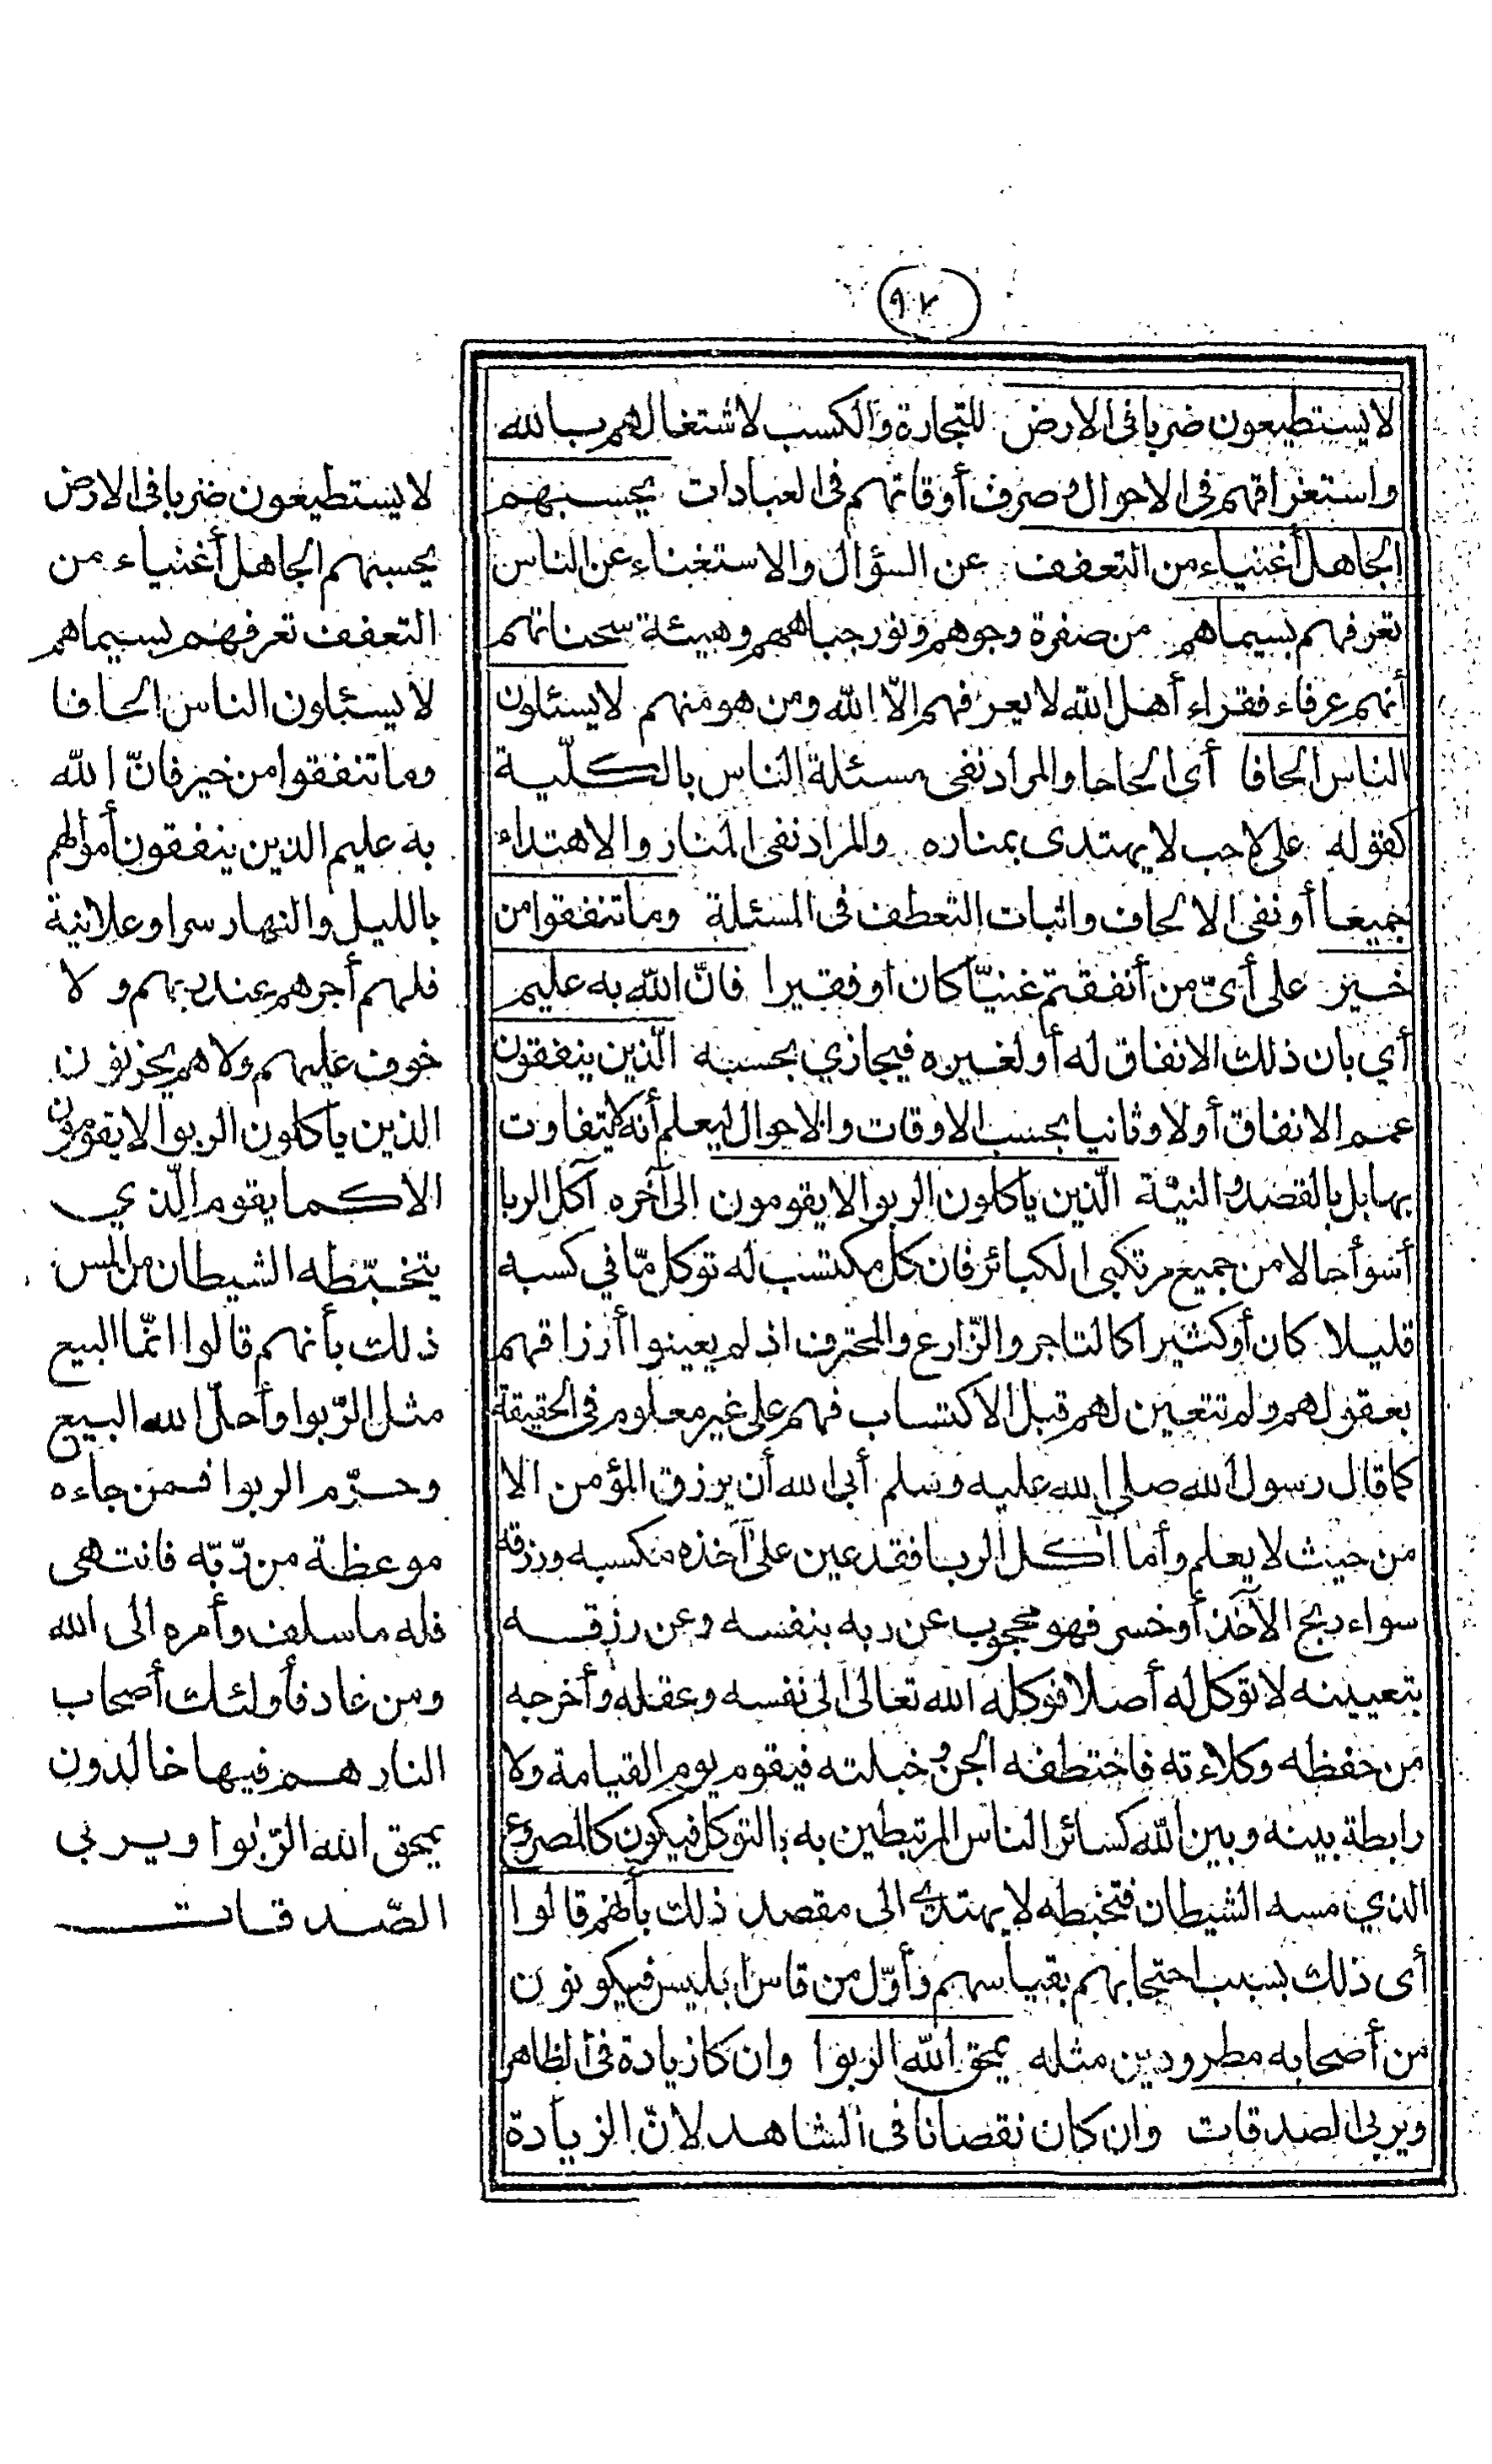 ٩٢
لا يستطيعون ضربا فى الارض للتجارة والكسب لاشتغالهم بالله
واستغراقهم فى الاحوال وصرف أوقاتهم فى العبادات يحسبهم
الجاهل أغنياء من التعفف عن السؤال والاستغناء عن الناس
تعرفهم بسيماهم من صفرة وجوههم ونور جباههم وهيئة سحناتهم
أنهم عرفاء فقراء أهل الله لا يعرفهم الّا الله ومن هو منهم لا يسئلون
الناس الحافا أى الحاحا والمراد نفى مسئلة الناس بالكلّية
كقوله على لاحب لا يهتدى بمناره والمراد نفى المنار والاهتداء
جميعا أو نفى الالحاف واثبات التعطف فى المسئلة وما تنفقوا من
خير على أىّ من أنفقتم غنيّا كان أو فقيرا فانّ الله به عليم
أي بان ذلك الانفاق له أو لغيره فيجازي بحسبه الّذين ينفقون
عمم الانفاق أولا وثانيا بحسب الاوقات والاحوال ليعلم أنه لا يتفاوت
بها بل بالقصد والنية الّذين يأكلون الربوا لا يقومون الى آخره آكل الربا
أسوأ حالا من جميع مرتكبى الكبائر فان كل مكتسب له توكل مّا في كسبه
قليلا كان أو كثيرا كالتاجر والزّارع والمحترف اذ لم يعينوا أرزاقهم
بعقولهم ولم تتعين لهم قبل الاكتساب فهم على غير معلوم فى الحقيقة
كما قال رسول الله صلى الله عليه وسلم أبى الله أن يرزق المؤمن الا
من حيث لا يعلم وأما آكل الربا فقد عين على آخذه مكسبه ورزقه
سواء ربح الآخذ أو خسر فهو محجوب عن ربه بنفسه وعن رزقه
بتعيينه لا توكل له أصلا فوكله الله تعالى الى نفسه وعقله وأخرجه
من حفظه وكلاءته فاختطفه الجن وخبلته فيقوم يوم القيامة ولا
رابطة بينه وبين الله كسائر الناس المرتبطين به بالتوكل فيكون كالمصروع
الذي مسه الشيطان فتخبطه لا يهتدى الى مقصد ذلك بأنهم قالوا
أى ذلك بسبب احتجابهم بقياسهم وأوّل من قاس ابليس فيكونون
من أصحابه مطرودين مثله يمحق الله الربوا وان كان زيادة فى الظاهر
ويربى الصدقات وان كان نقصانا فى الشاهد لانّ الزيادة
لا يستطيعون ضربا فى الارض
يحسبهم الجاهل أغنياء من
التعفف تعرفهم بسيماهم
لا يسئلون الناس الحافا
وما تنفقوا من خير فانّ الله
به عليم الذين ينفقون أموالهم
بالليل والنهار سرا وعلانية
فلهم أجرهم عند ربهم ولا
خوف عليهم ولا هم يحزنون
الذين يأكلون الربوا لا يقومون
الا كما يقوم الّذي
يتخبّطه الشيطان من المس
ذلك بأنهم قالوا انّما البيع
مثل الرّبوا وأحلّ الله البيع
وحرّم الربوا فمن جاءه
موعظة من ربّه فانتهى
فله ما سلف وأمره الى الله
ومن عاد فأولئك أصحاب
النار هم فيها خالدون
يمحق الله الرّبوا ويربى
الصّدقات